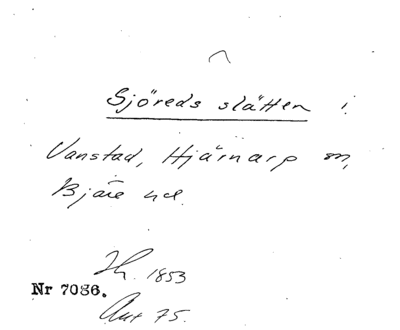 Sjöreds slätten i
Vanstad, Hjärnarp sn,
Bjäre hd.
Ih. 1853
Nr 7036.
Aut 75.